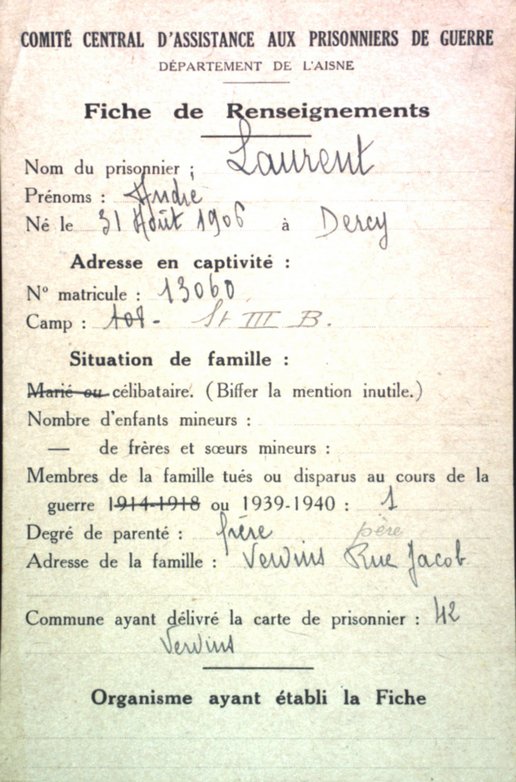 COMITÉ CENTRAL D'ASSISTANCE AUX PRISONNIERS DE GUERRE
DÉPARTEMENT DE L'AISNE
Fiche de Renseignements
Nom du prisonnier : Laurent
Prénoms : André
Né le 31 Août 1906 à Dercy
Adresse en captivité :
N° matricule : 13060
Camp : 108 - St III B.
Situation de famille :
Marié ou célibataire. (Biffer la mention inutile.)
Nombre d'enfants mineurs :
— de frères et sœurs mineurs :
Membres de la famille tués ou disparus au cours de la
guerre 1914-1918 ou 1939-1940 : 1
Degré de parenté : frère père
Adresse de la famille : Vervins Rue Jacob
Commune ayant délivré la carte de prisonnier : 42
Vervins
Organisme ayant établi la Fiche